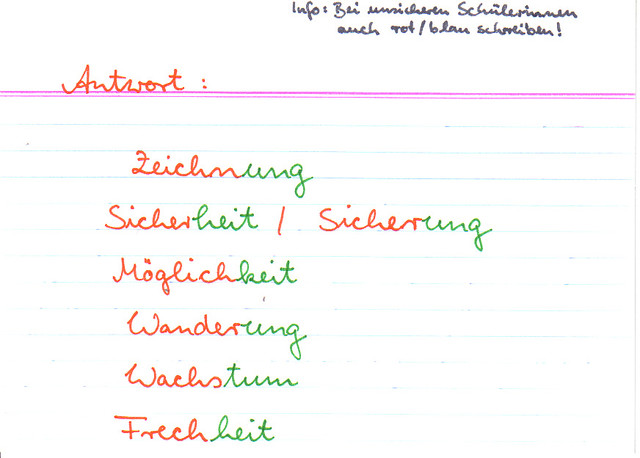 Info: Bei unsicheren Schülerinnen
auch rot/blau schreiben!
Antwort:
Zeichnung
Sicherheit / Sicherung
Möglichkeit
Wanderung
Wachstum
Frechheit